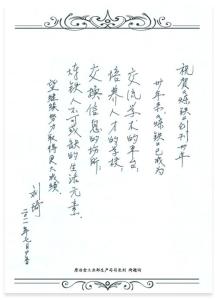 祝贺《炼铁》创刊卅年
卅年来《炼铁》已成为
交流学术的平台，
培养人才的学校，
交换信息的场所，
炼铁人不可或缺的生活元素。
望继续努力取得更大成绩。
刘琦
二〇一一年七月
原冶金工业部生产司司长刘琦题词